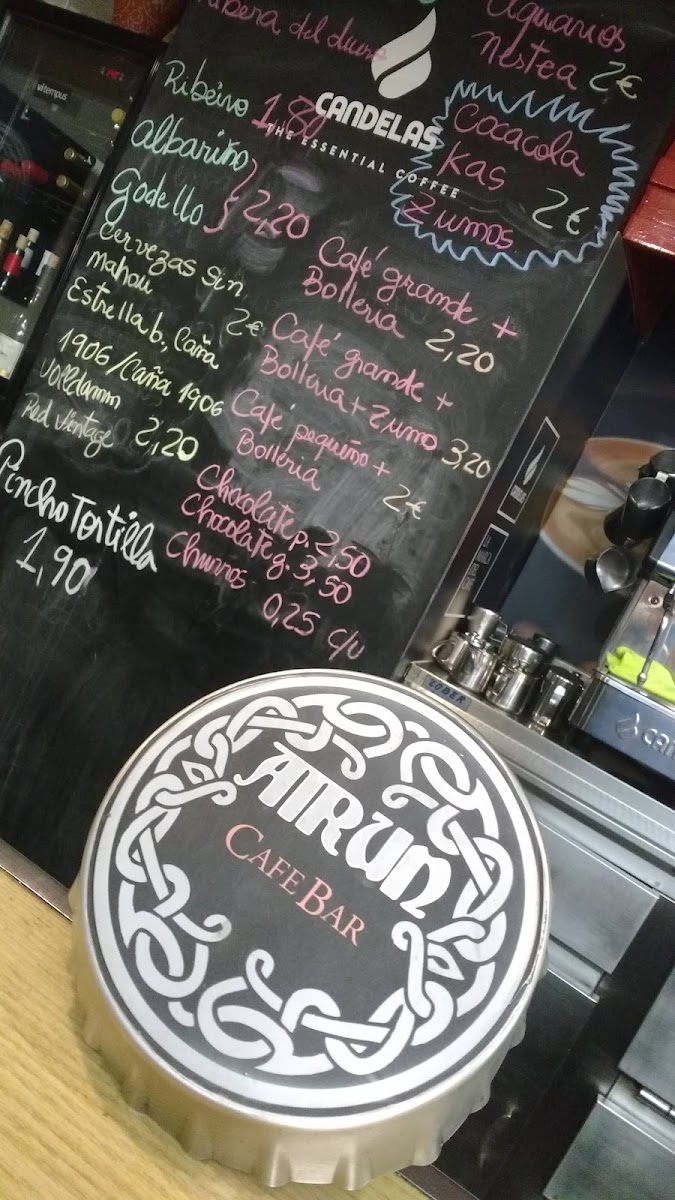 Ribera del duero
Ribeiro 1,80
albariño
Godello } 2,20
Cervezas Sin
mahou 2€
Estrella b., Caña
1906/Caña 1906
Volldamm
Red Vintage 2,20
Pincho Tortilla
1,90
CANDELAS
THE ESSENTIAL COFFEE
aquarios
nestea 2€
Cocacola
Kas 2€
Zumos
Café grande +
Bolleria 2,20
Café grande +
Bolleria + Zumo 3,20
Café pequeño +
Bolleria 2€
Chocolate p. 2,50
Chocolate g. 3,50
Churros 0,25 c/u
vitempus
AIRUN
CAFE BAR